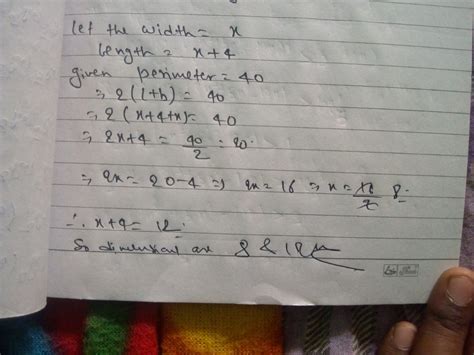 let the width = x
length = x+4
given perimeter = 40
⇒ 2(l+b) = 40
⇒ 2(x+4+x) = 40
⇒ 2x+4 = 40/2 = 20.
⇒ 2x = 20-4 ⇒ 2x = 16 ⇒ x = 16/2 8.
∴ x+4 = 12.
So dimensions are 8 & 12